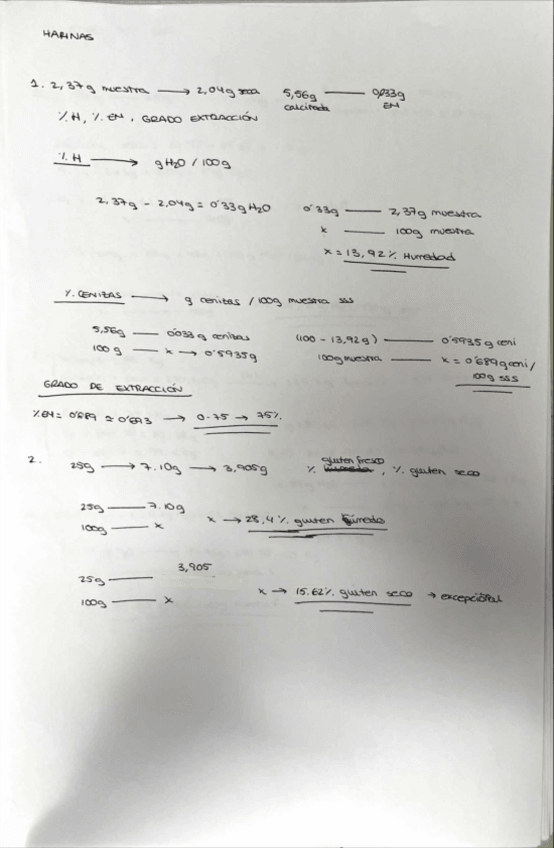 HARINAS
1. 2,37g muestra → 2,04g seca 5,56g — 0,033g
calcinada EM
%H, %EM, GRADO EXTRACCIÓN
%H → gH2O / 100g
2,37g - 2,04g = 0'33g H2O 0'33g — 2,37g muestra
x — 100g muestra
x = 13,92% Humedad
% CENIZAS → g cenizas / 100g muestra sss
5,56g — 0'033g cenizas (100 - 13,92g) — 0'5935g ceni
100g — x → 0'5935g 100g muestra — x = 0'689g ceni/
100g sss
GRADO DE EXTRACCIÓN
%EM = 0'689 ≈ 0'693 → 0-75 → 75%.
2. 25g → 7.10g → 3,905g % gluten fresco, % gluten seco
25g — 7.10g
100g — x x → 28,4% gluten húmedo
25g — 3,905
100g — x x → 15.62% gluten seco → excepcional